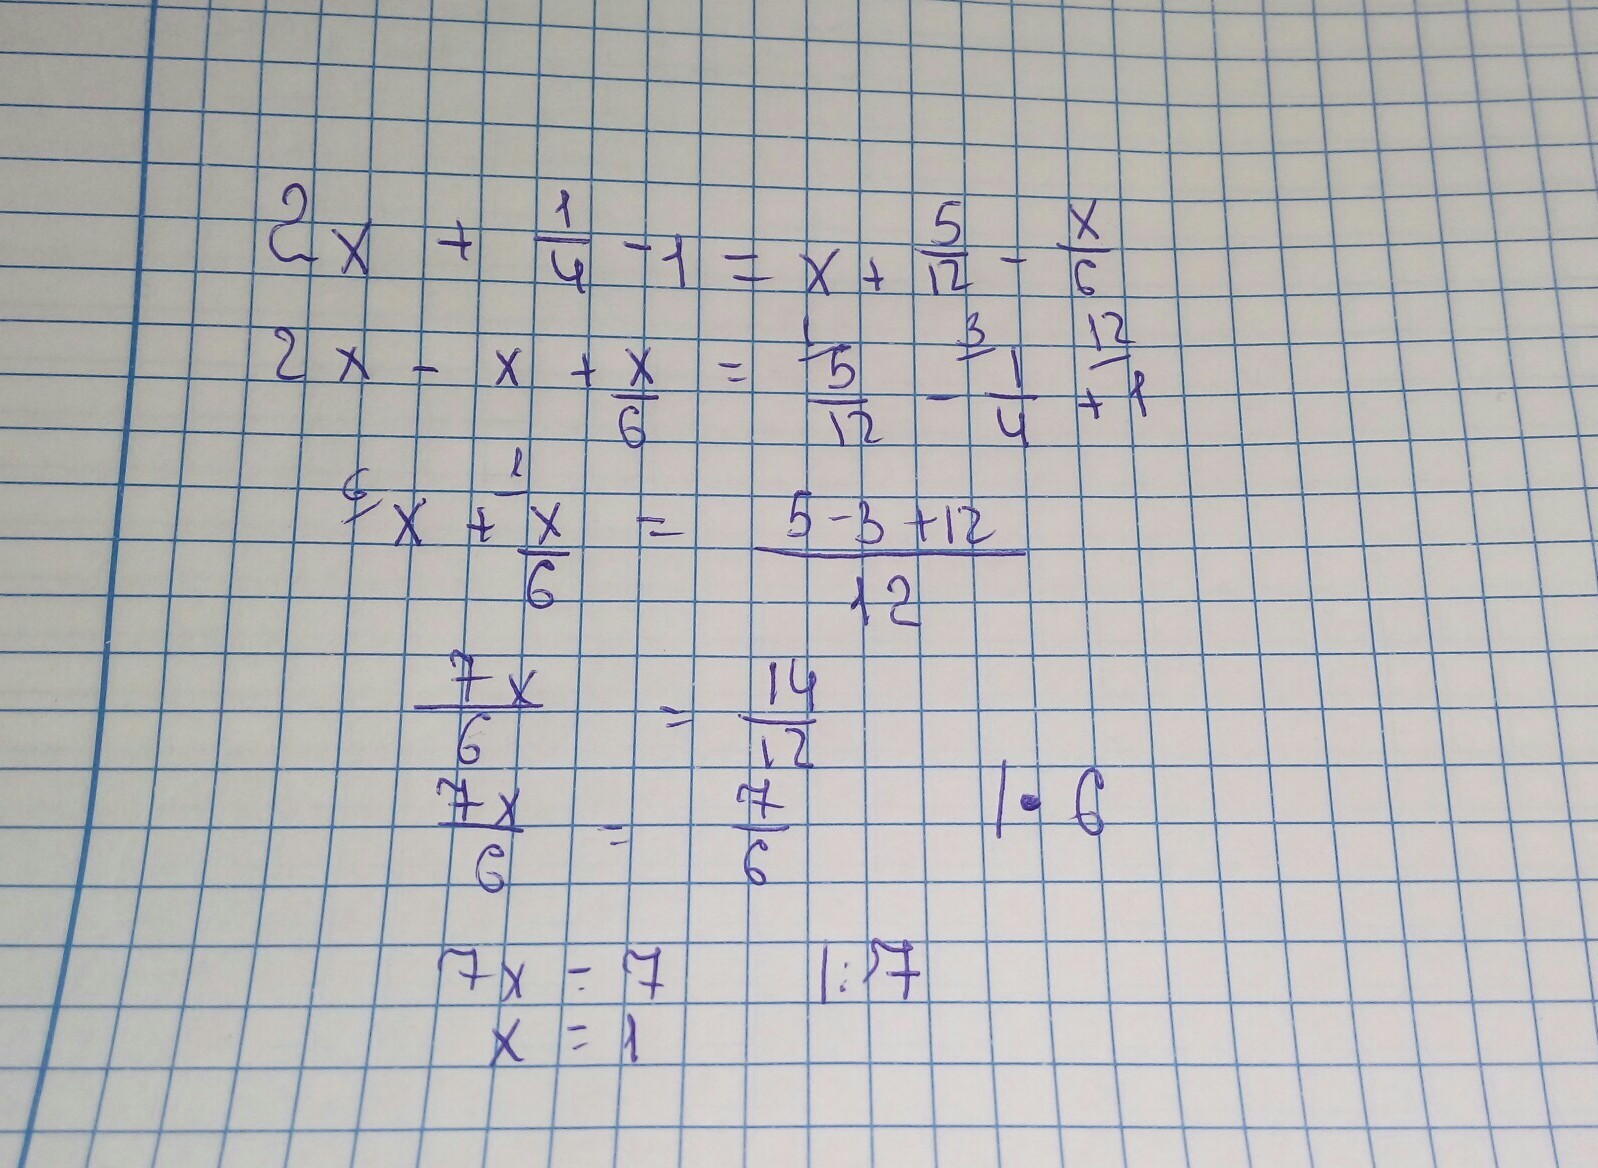 2x + 1/4 - 1 = x + 5/12 - x/6
2x - x + x/6 = 1/ 5/12 - 3/ 1/4 + 12/ 1
6/ x + 1/ x/6 = (5 - 3 + 12)/12
7x/6 = 14/12
7x/6 = 7/6 | • 6
7x = 7 | : 7
x = 1